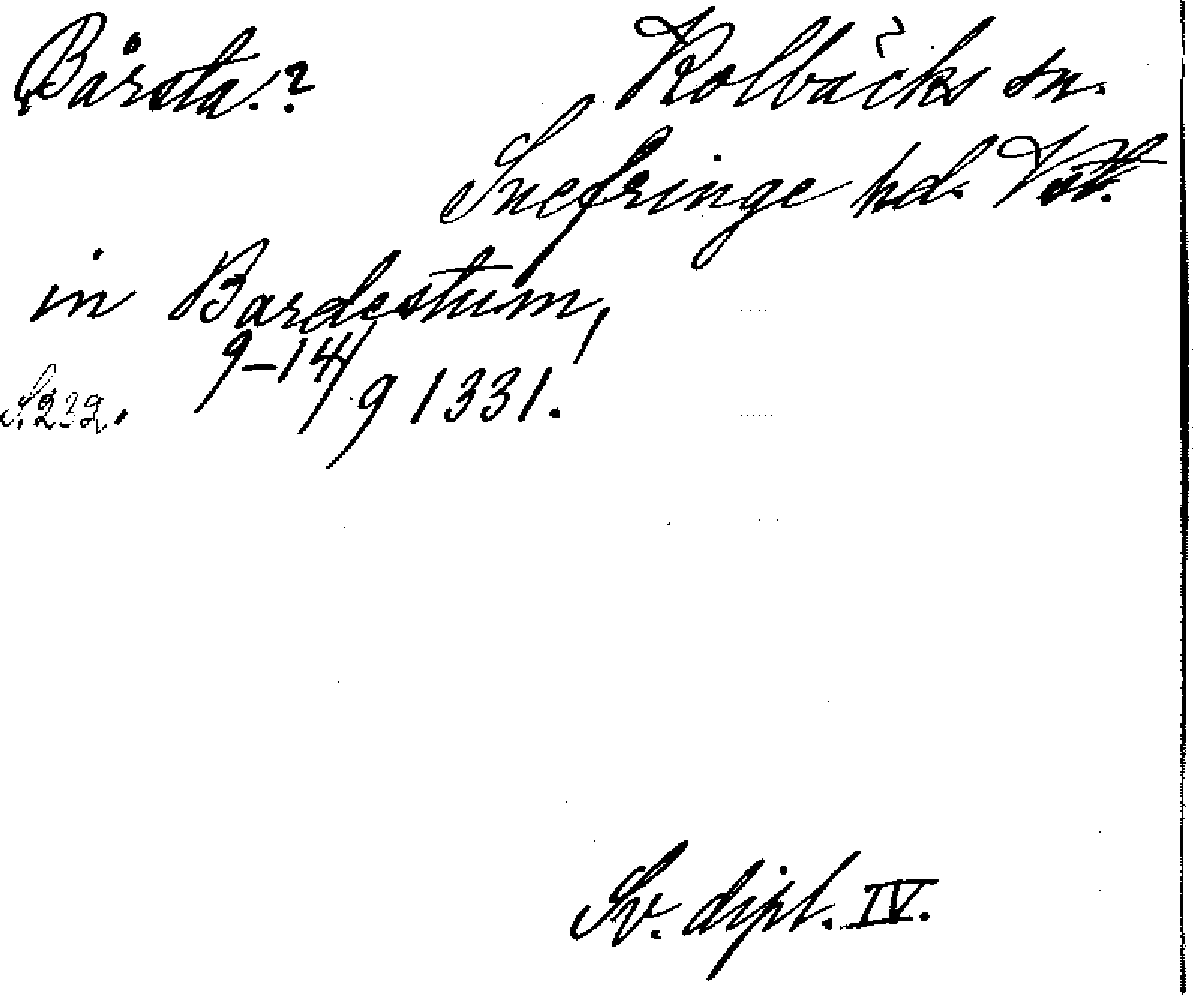 Bårsta.? Kolbäcks sn.
Snefringe hd. Vstl.
in Bardestum,
S. 232. 9-14/9 1331.
Sv. dipl. IV.